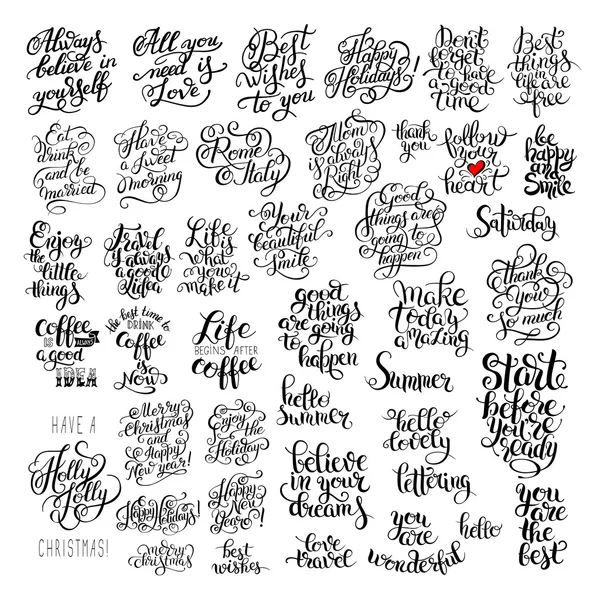 Always
believe in
yourself
All you
need is
Love
Best
Wishes
to you
Happy
Holidays!
Don't
forget
to have
a good
time
Best
things
in
life are
free
Eat
drink
and be
married
Have
a sweet
morning
Rome
Italy
Mom
is always
Right
thank
you
follow
your
heart
be
happy
and
smile
Enjoy
the little
things
Travel
is always
a good
idea
Life is
what
you
make it
Your
beautiful
Smile
Good
things are
going to
happen
Saturday
Thank
You
so much
coffee
IS ALWAYS
a good
IDEA
the best time to
DRINK
Coffee
is
Now
Life
BEGINS AFTER
coffee
good
things
are going
to
happen
make
today
amazing
Summer
Start
before
you're
ready
HAVE A
Holly
Jolly
CHRISTMAS!
Merry
Christmas
and
Happy
New year!
Enjoy
the
Holidays
hello
Summer
hello
lovely
lettering
Happy Holidays!
Happy
New
Year!
believe
in your
dreams
you are
wonderful
hello
you
are
the
best
merry
christmas
best
wishes
love
travel